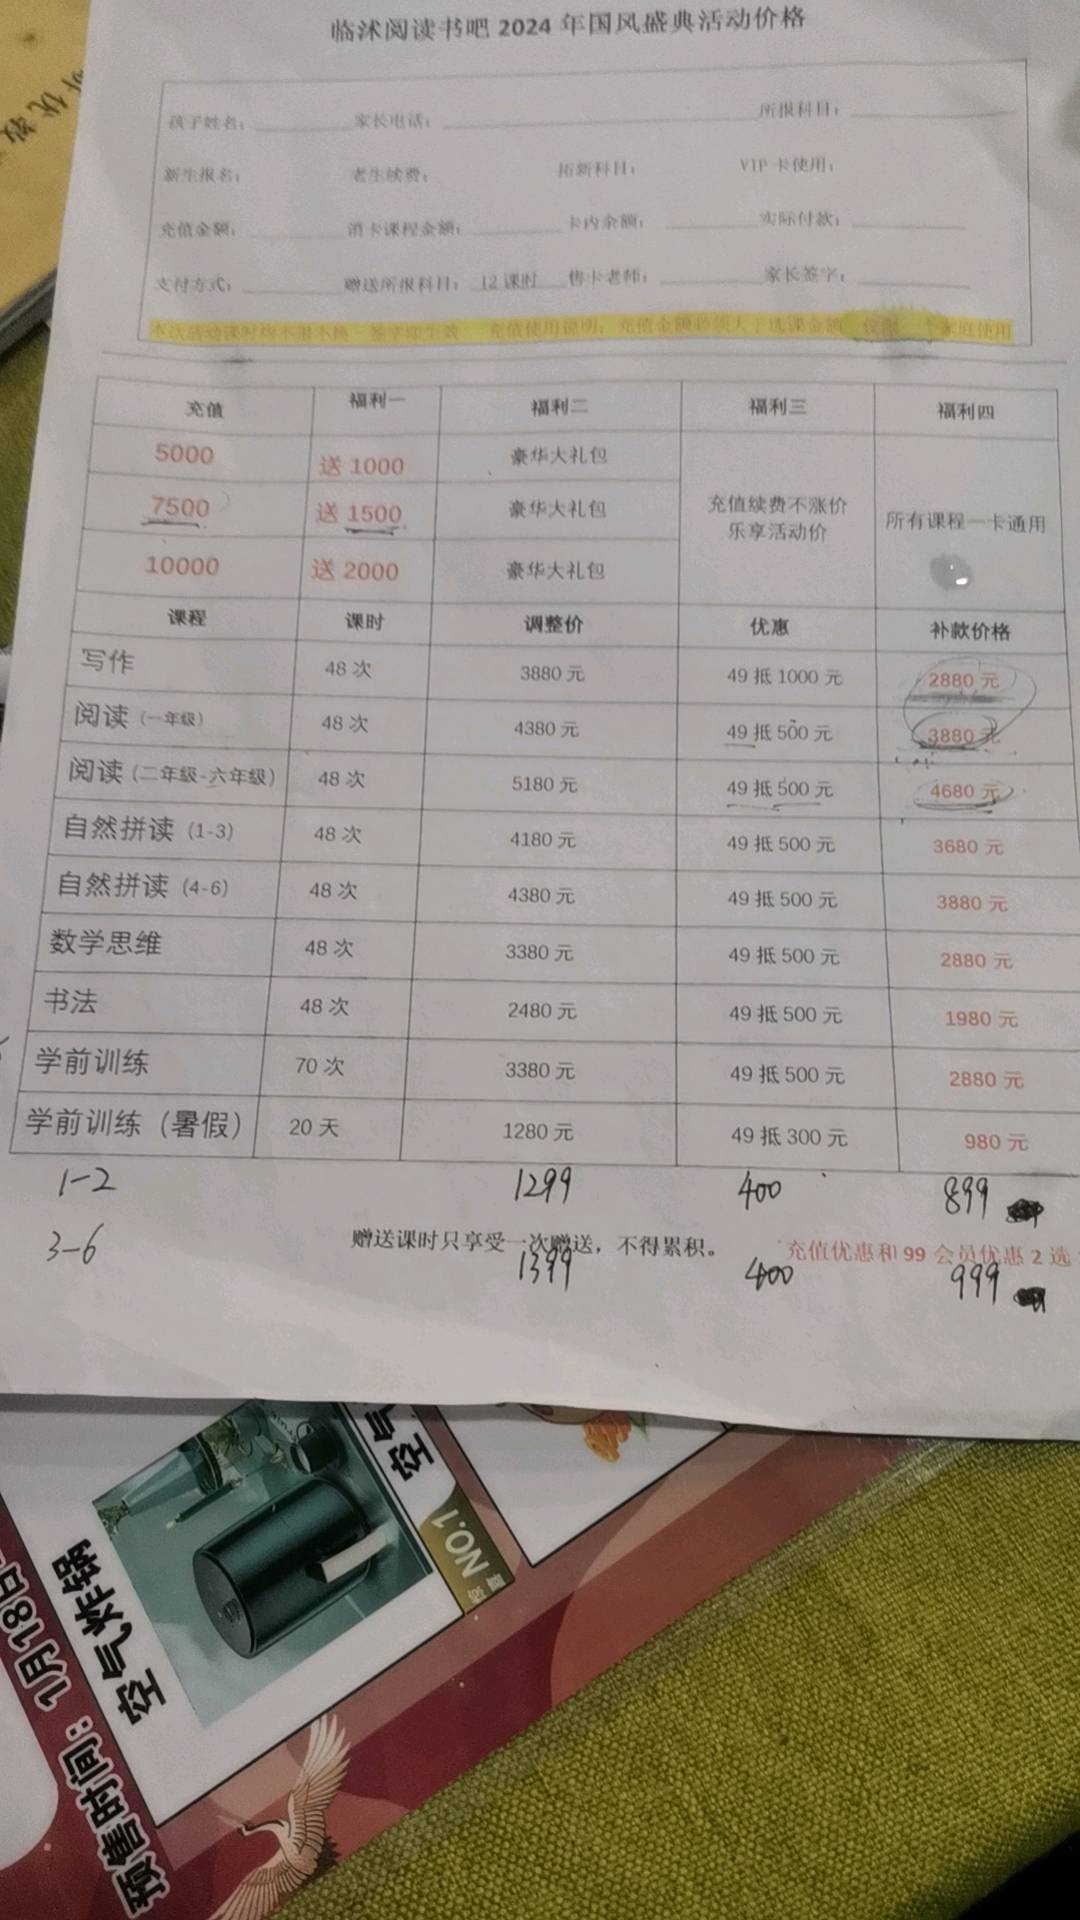 临沭阅读书吧 2024 年国风盛典活动价格
孩子姓名： 家长电话： 所报科目：
新生报名： 老生续费： 拓新科目： VIP 卡使用：
充值金额： 消卡课程金额： 卡内余额： 实际付款：
支付方式： 赠送所报科目： 12 课时 售卡老师： 家长签字：
本次活动课时均不退不换 签字即生效 充值使用说明：充值金额必须大于选课金额 仅限一个家庭使用
充值 福利一 福利二 福利三 福利四
5000 送 1000 豪华大礼包
7500 送 1500 豪华大礼包 充值续费不涨价 乐享活动价 所有课程一卡通用
10000 送 2000 豪华大礼包
课程 课时 调整价 优惠 补款价格
写作 48 次 3880 元 49 抵 1000 元 2880 元
阅读（一年级） 48 次 4380 元 49 抵 500 元 3880 元
阅读（二年级-六年级） 48 次 5180 元 49 抵 500 元 4680 元
自然拼读（1-3） 48 次 4180 元 49 抵 500 元 3680 元
自然拼读（4-6） 48 次 4380 元 49 抵 500 元 3880 元
数学思维 48 次 3380 元 49 抵 500 元 2880 元
书法 48 次 2480 元 49 抵 500 元 1980 元
学前训练 70 次 3380 元 49 抵 500 元 2880 元
学前训练（暑假） 20 天 1280 元 49 抵 300 元 980 元
1-2 1299 400 899
赠送课时只享受一次赠送，不得累积。 充值优惠和 99 会员优惠 2 选
3-6 1399 400 999
空气
NO.1
空气炸锅
预售时间：1月18日